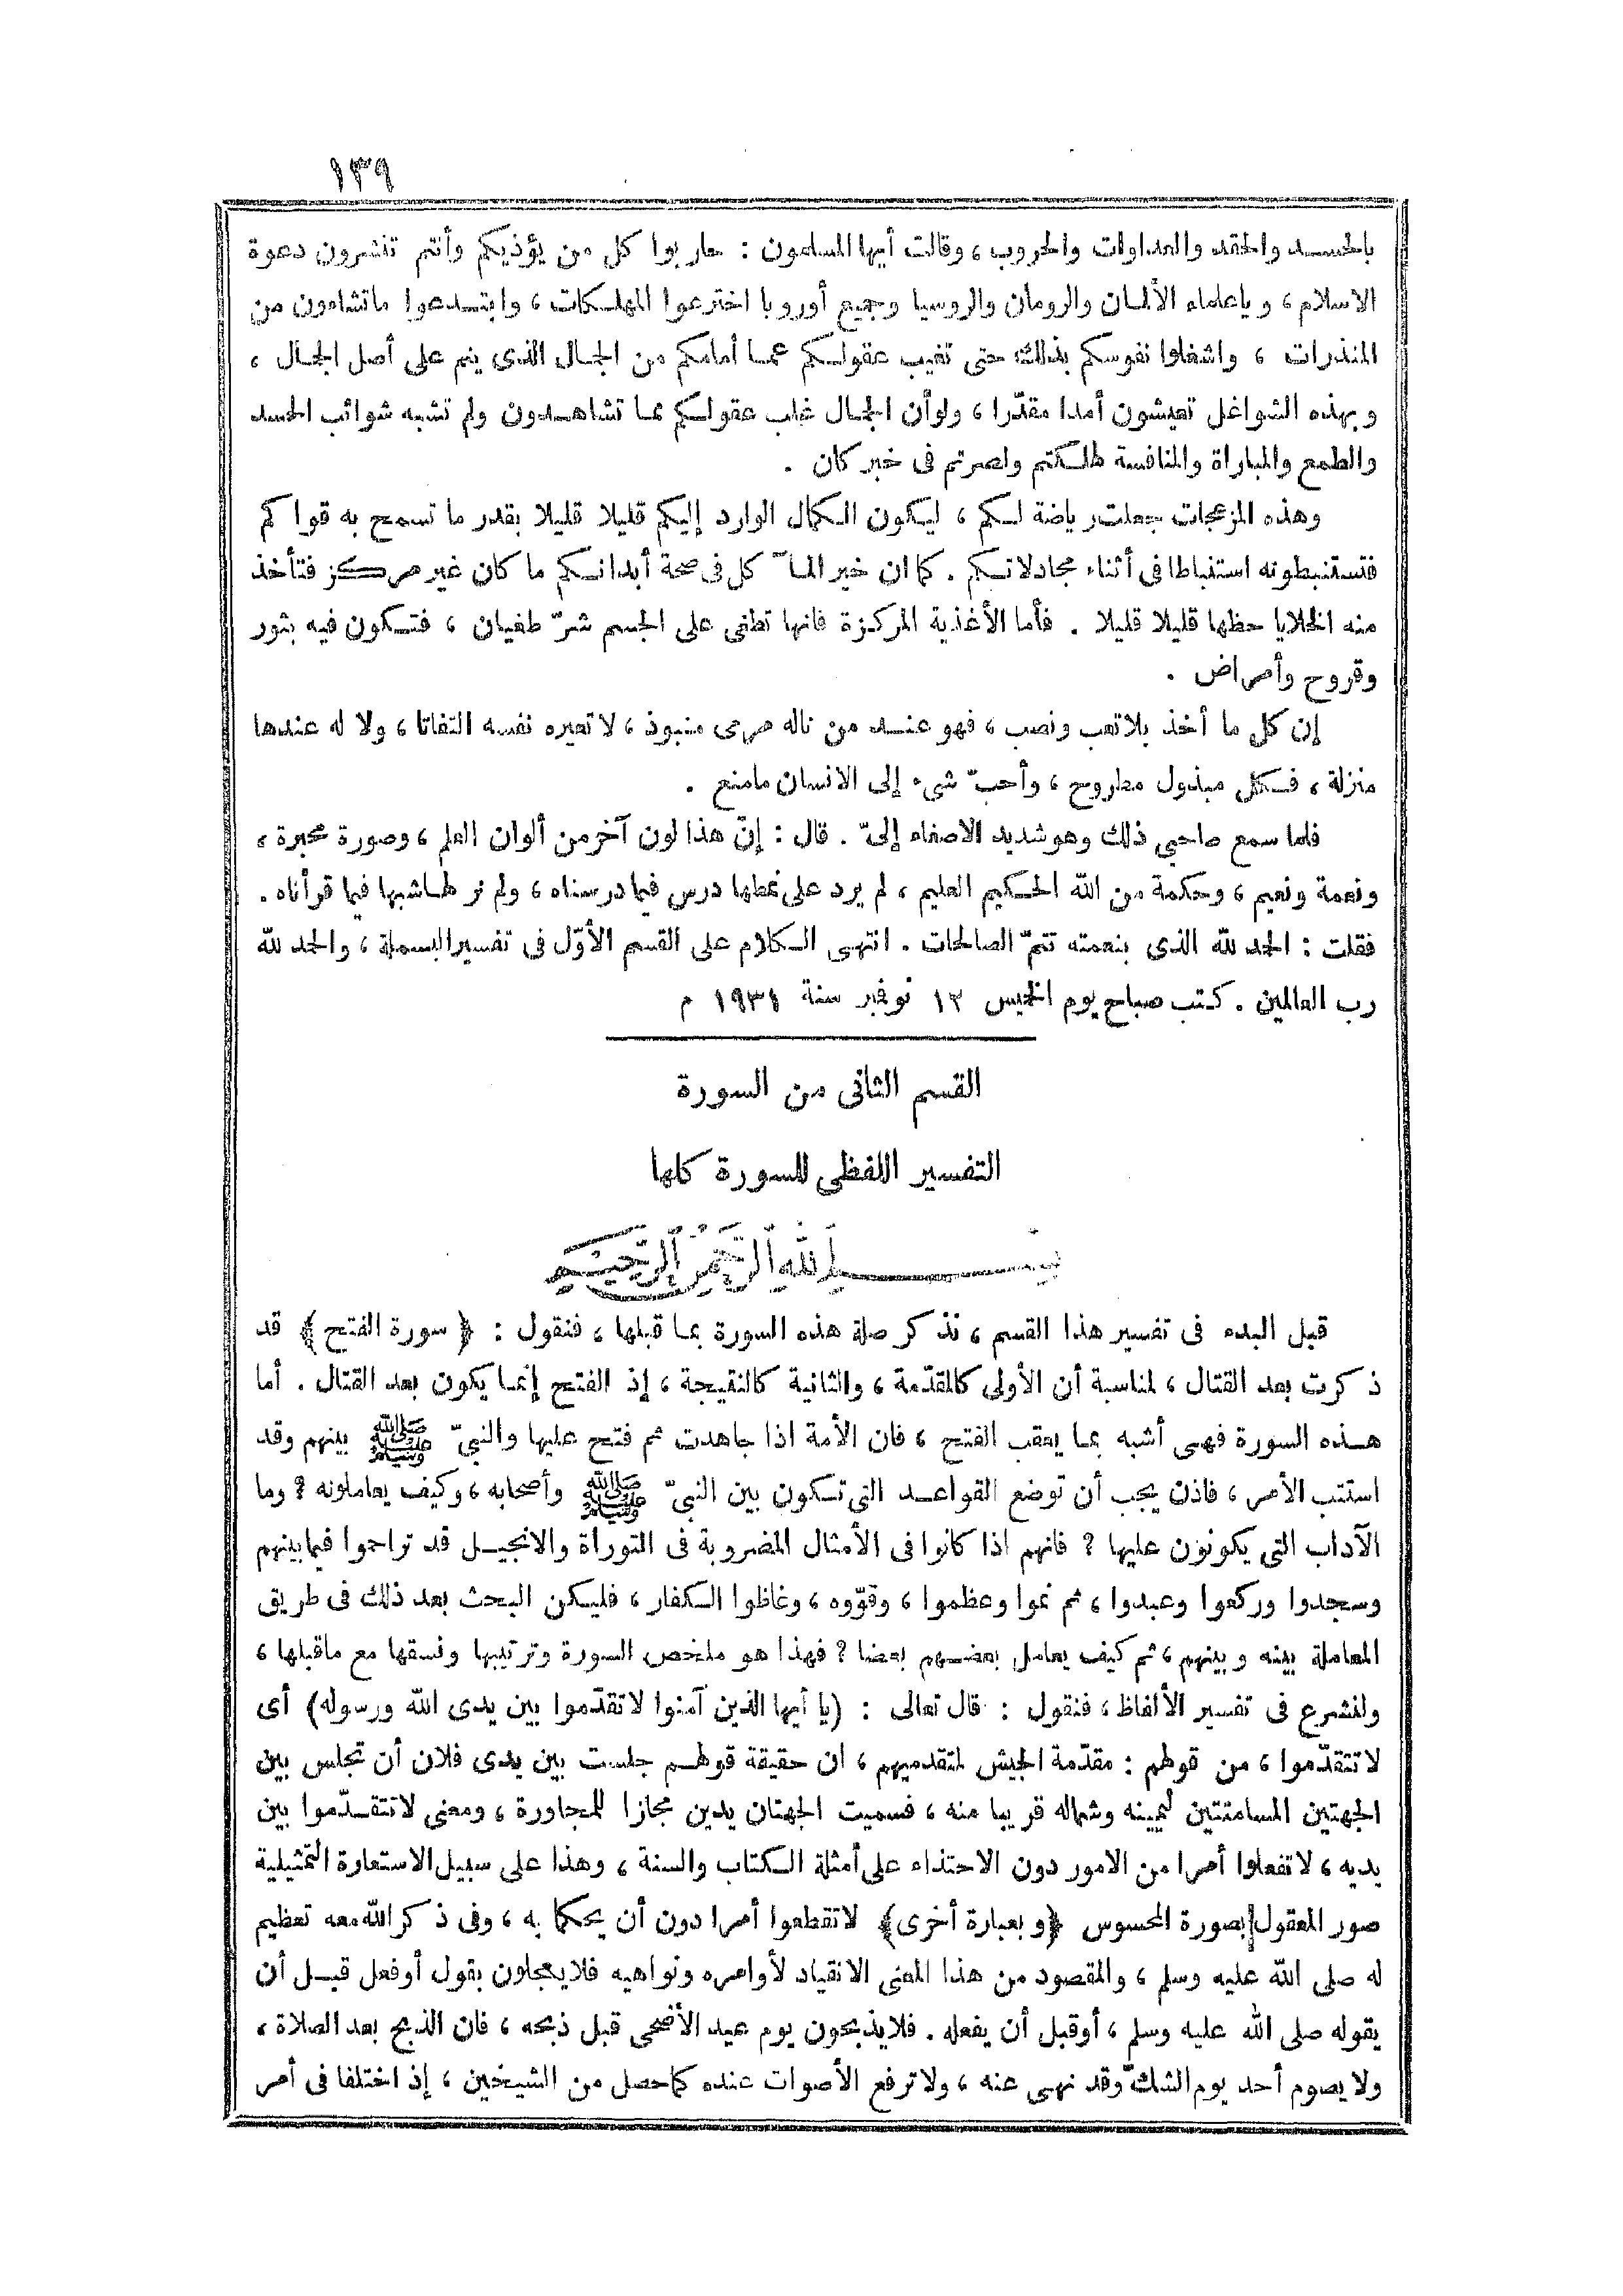 ١٣٩
بالحسد والحقد والعداوات والحروب ، وقالت أيها المسلمون : حاربوا كل من يؤذيكم وأنتم تنشرون دعوة
الاسلام ، وياعلماء الألمان والرومان والروسيا وجميع أوروبا اخترعوا المهلكات ، وابتدعوا ماتشاءون من
المنذرات ، واشغلوا نفوسكم بذلك حتى تغيب عقولكم عما أمامكم من الجمال الذى ينم على أصل الجمال ،
وبهذه الشواغل تعيشون أمدا مقدّرا ، ولوأن الجمال غلب عقولكم مما تشاهدون ولم تشبه شوائب الحسد
والطمع والمباراة والمنافسة لهلكتم ولصرتم فى خبر كان .
وهذه المزعجات جعلت رياضة لكم ، ليكون الكمال الوارد إليكم قليلا قليلا بقدر ما تسمح به قواكم
فتستنبطونه استنباطا فى أثناء مجادلاتكم . كما ان خير المآكل فى صحة أبدانكم ما كان غير مركز فتأخذ
منه الخلايا حظها قليلا قليلا . فأما الأغذية المركزة فانها تطغى على الجسم شرّ طغيان ، فتكون فيه بثور
وقروح وأمراض .
إن كل ما أخذ بلاتعب ونصب ، فهو عند من ناله مرمى منبوذ ، لاتعيره نفسه التفاتا ، ولا له عندها
منزلة ، فكل مبذول مطروح ، وأحبّ شىء إلى الانسان مامنع .
فلما سمع صاحبى ذلك وهو شديد الاصغاء إلىّ . قال : إنّ هذا لون آخر من ألوان العلم ، وصورة محبرة ،
ونعمة ونعيم ، وحكمة من الله الحكيم العليم ، لم يرد على نمطها درس فيما درسناه ، ولم نر لها شبها فيما قرأناه .
فقلت : الحمد لله الذى بنعمته تتمّ الصالحات . انتهى الكلام على القسم الأوّل فى تفسير البسملة ، والحمد لله
رب العالمين . كتب صباح يوم الخميس ١٢ نوفمبر سنة ١٩٣١ م
القسم الثانى من السورة
التفسير اللفظى للسورة كلها
بسم الله الرحمن الرحيم
قبل البدء فى تفسير هذا القسم ، نذكر صلة هذه السورة بما قبلها ، فنقول : ﴿ سورة الفتح ﴾ قد
ذكرت بعد القتال ، لمناسبة أن الأولى كالمقدّمة ، والثانية كالنتيجة ، إذ الفتح إنما يكون بعد القتال . أما
هذه السورة فهى أشبه بما يعقب الفتح ، فان الأمة اذا جاهدت ثم فتح عليها والنبىّ ﷺ بينهم وقد
استتب الأمر ، فاذن يجب أن توضع القواعد التى تكون بين النبىّ ﷺ وأصحابه ، وكيف يعاملونه ? وما
الآداب التى يكونون عليها ? فانهم اذا كانوا فى الأمثال المضروبة فى التوراة والانجيل قد تراحموا فيما بينهم
وسجدوا وركعوا وعبدوا ، ثم نموا وعظموا ، وقوّوه ، وغاظوا الكفار ، فليكن البحث بعد ذلك فى طريق
المعاملة بينه وبينهم ، ثم كيف يعامل بعضهم بعضا ? فهذا هو ملخص السورة وترتيبها ونسقها مع ماقبلها ،
ولنشرع فى تفسير الألفاظ ، فنقول : قال تعالى : (يا أيها الذين آمنوا لاتقدّموا بين يدى الله ورسوله) أى
لاتتقدّموا ، من قولهم : مقدّمة الجيش لمتقدميهم ، ان حقيقة قولهم جلست بين يدى فلان أن تجلس بين
الجهتين المسامتتين ليمينه وشماله قريبا منه ، فسميت الجهتان يدين مجازا للمجاورة ، ومعنى لاتتقدّموا بين
يديه ، لاتفعلوا أمرا من الامور دون الاحتذاء على أمثلة الكتاب والسنة ، وهذا على سبيل الاستعارة التمثيلية
صور المعقول بصورة المحسوس ﴿وبعبارة أخرى﴾ لاتقطعوا أمرا دون أن يحكما به ، وفى ذكر الله معه تعظيم
له صلى الله عليه وسلم ، والمقصود من هذا المعنى الانقياد لأوامره ونواهيه فلايعجلون بقول أوفعل قبل أن
يقوله صلى الله عليه وسلم ، أوقبل أن يفعله . فلايذبحون يوم عيد الأضحى قبل ذبحه ، فان الذبح بعد الصلاة ،
ولا يصوم أحد يوم الشكّ وقد نهى عنه ، ولاترفع الأصوات عنده كما حصل من الشيخين ، إذ اختلفا فى أمر